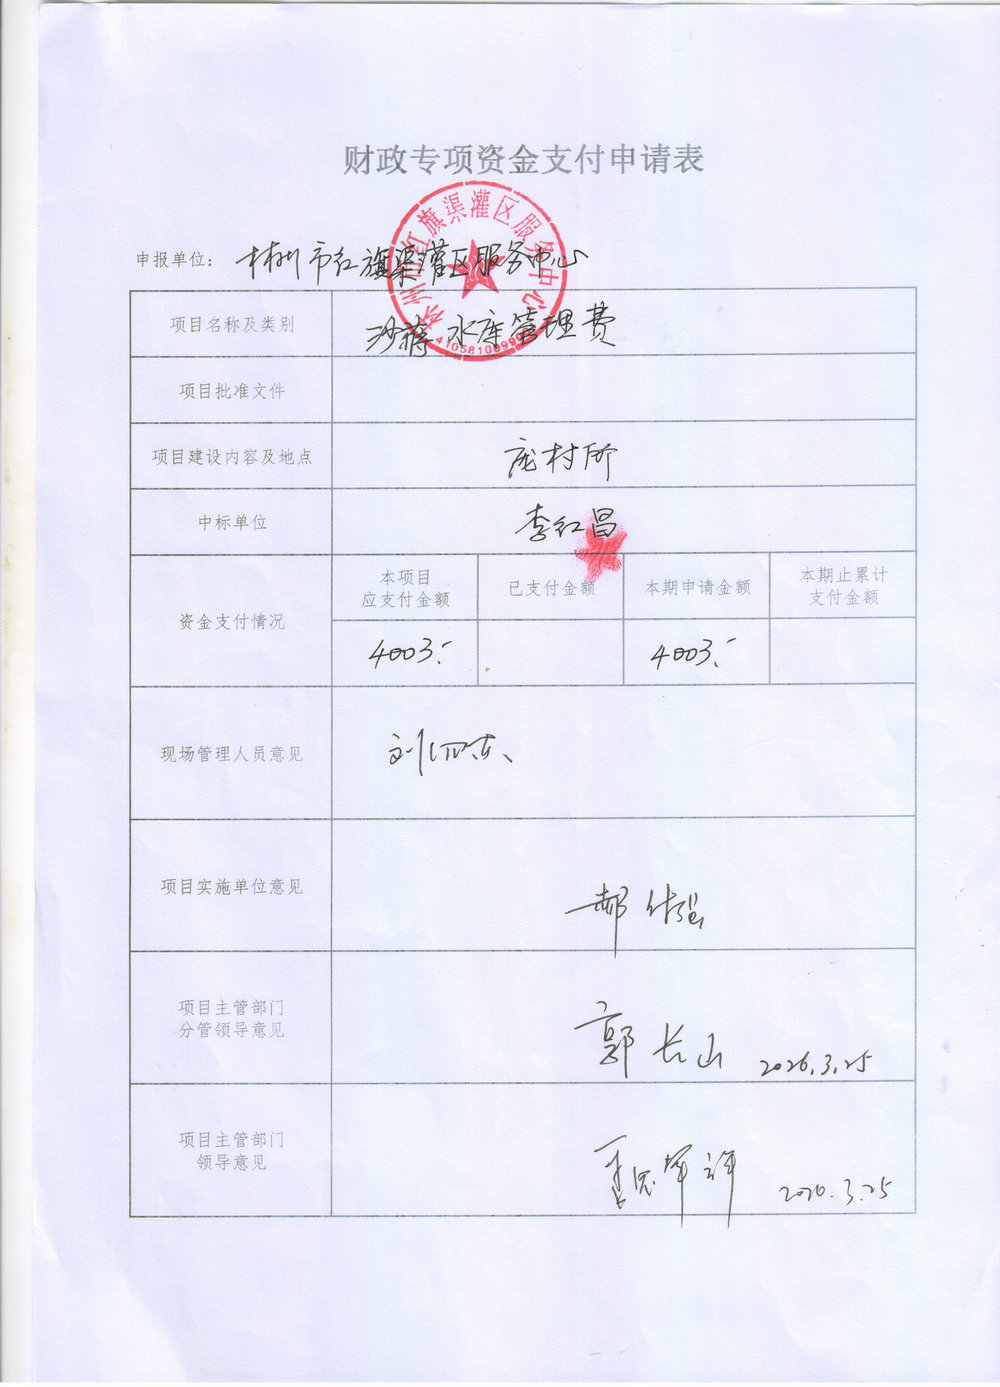 财政专项资金支付申请表
林州市红旗渠灌区服务中心
申报单位: 林州市红旗渠灌区服务中心
4105810099
项目名称及类别 沙蒋水库管理费
项目批准文件
项目建设内容及地点 庞村所
中标单位 李红昌
资金支付情况
本项目应支付金额 已支付金额 本期申请金额 本期止累计支付金额
4003.- 4003.-
现场管理人员意见 刘
项目实施单位意见 郝
项目主管部门
分管领导意见 郭长山 2026.3.25
项目主管部门
领导意见 2026.3.25